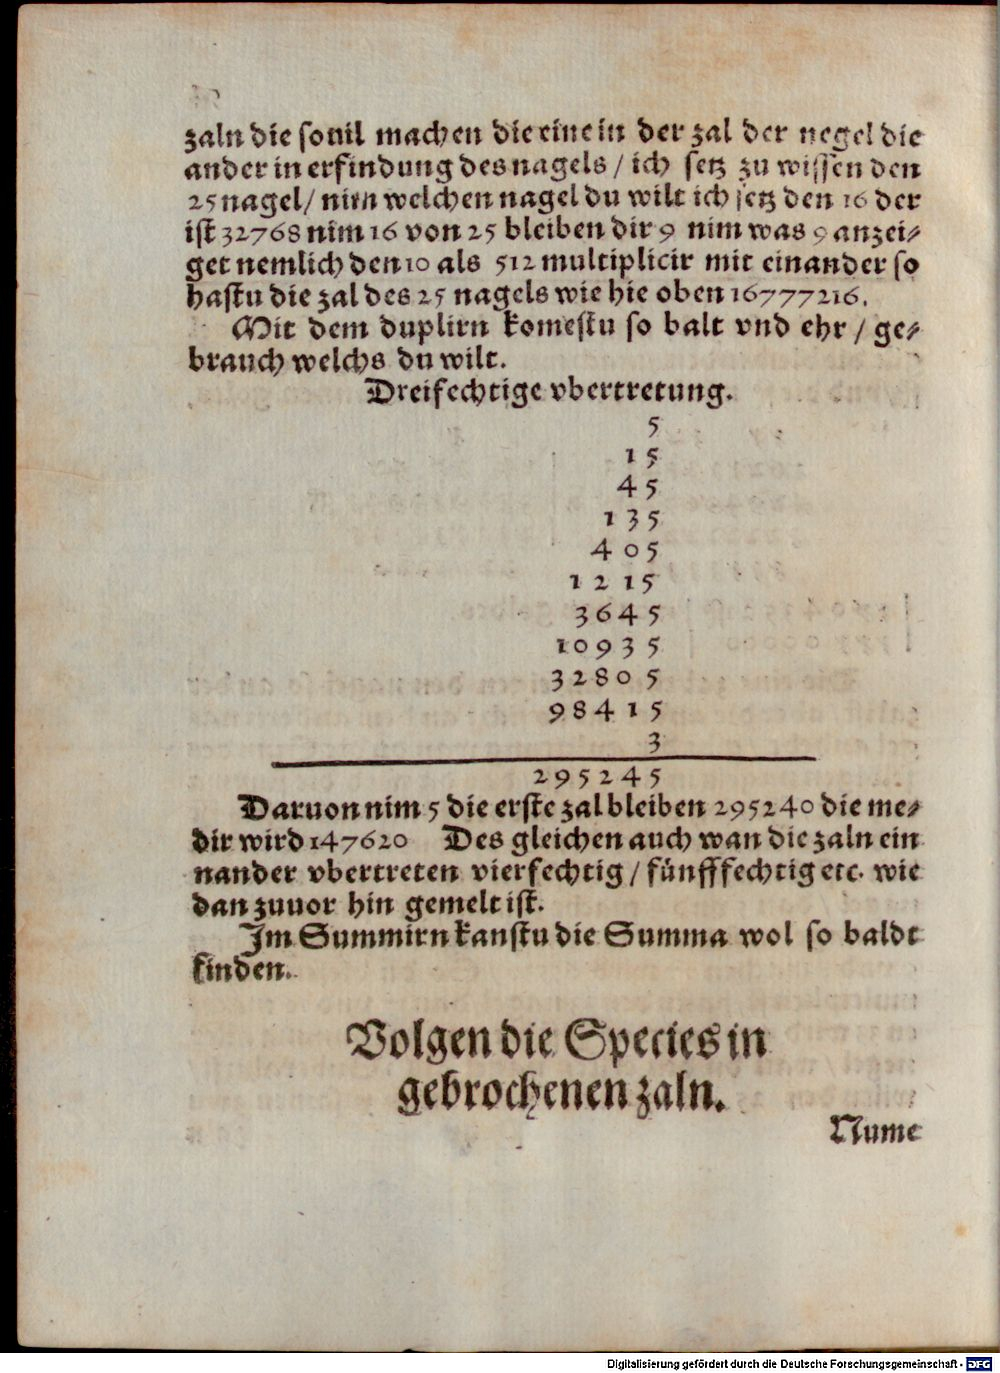 zaln die souil machen die eine in der zal der negel die
ander in erfindung des nagels / ich setz zu wissen den
25 nagel / nim welchen nagel du wilt ich setz den 16 der
ist 32768 nim 16 von 25 bleiben dir 9 nim was 9 anzei⸗
get nemlich den 10 als 512 multiplicir mit einander so
hastu die zal des 25 nagels wie hie oben 16777216.
Mit dem duplirn komestu so balt vnd ehr / ge⸗
brauch welchs du wilt.
Dreifechtige vbertretung.
5
15
45
135
405
1215
3645
10935
32805
98415
3
295245
Daruon nim 5 die erste zal bleiben 295240 die me⸗
dir wird 147620 Des gleichen auch wan die zaln ein
nander vbertreten vierfechtig / fünfffechtig etc. wie
dan zuuor hin gemelt ist.
Im Summirn kanstu die Summa wol so baldt
finden.
Volgen die Species in
gebrochenen zaln.
Nume
Digitalisierung gefördert durch die Deutsche Forschungsgemeinschaft - DFG